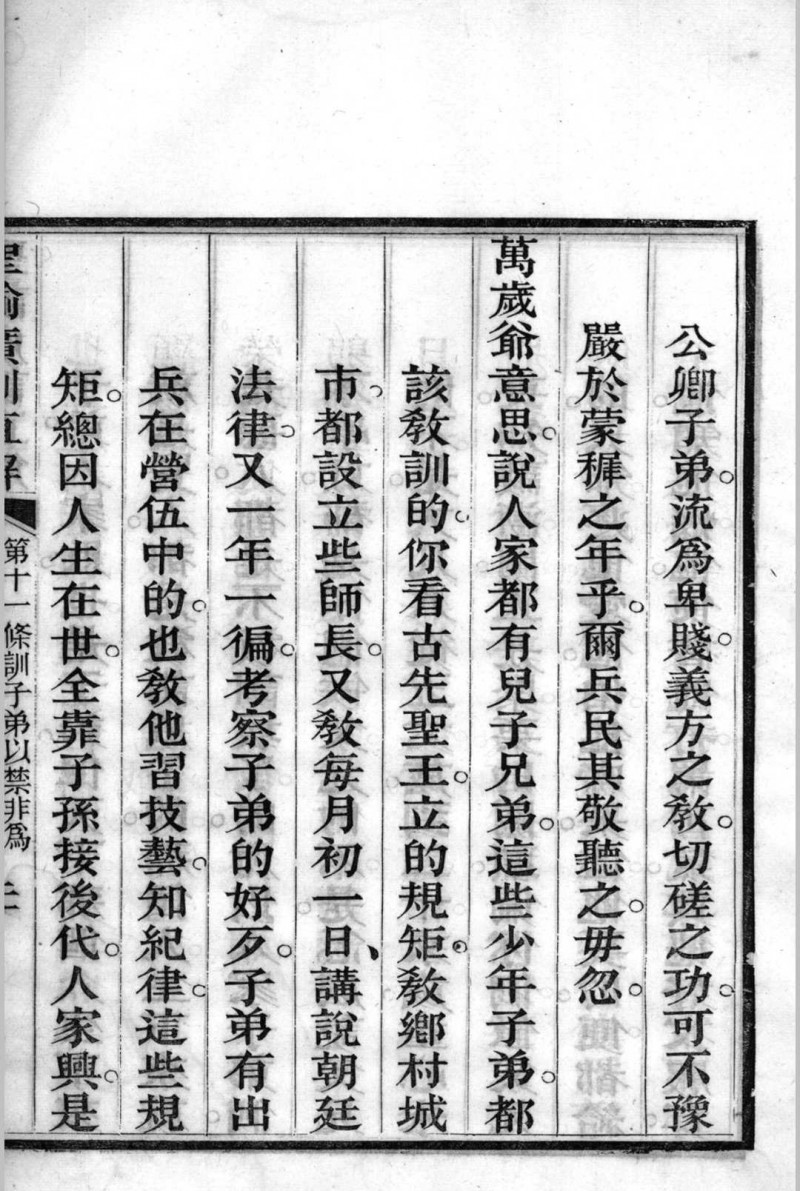 公卿子弟。流爲卑賤。義方之敎。切磋之功。可不豫
嚴於蒙穉之年乎。爾兵民其敬聽之。毋忽。
萬歲爺意思。說人家都有兒子兄弟。這些少年子弟。都
該敎訓的。你看古先聖王。立的規矩。敎鄉村城
市。都設立些師長。又敎每月初一日、講說朝廷
法律。又一年一徧。考察子弟的好歹。子弟有出
兵在營伍中的。也敎他習技藝。知紀律。這些規
矩。總因人生在世。全靠子孫接後代。人家興。是
聖諭廣訓直解 第十一條訓子弟以禁非爲 二